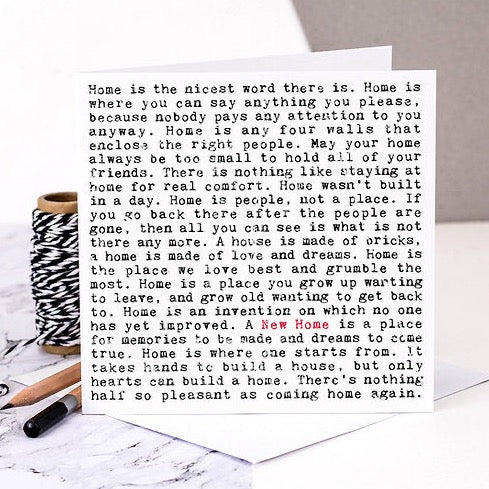 Home is the nicest word there is. Home is
where you can say anything you please,
because nobody pays any attention to you
anyway. Home is any four walls that
enclose the right people. May your home
always be too small to hold all of your
friends. There is nothing like staying at
home for real comfort. Home wasn't built
in a day. Home is people, not a place. If
you go back there after the people are
gone, then all you can see is what is not
there any more. A house is made of bricks,
a home is made of love and dreams. Home is
the place we love best and grumble the
most. Home is a place you grow up wanting
to leave, and grow old wanting to get back
to. Home is an invention on which no one
has yet improved. A New Home is a place
for memories to be made and dreams to come
true. Home is where one starts from. It
takes hands to build a house, but only
hearts can build a home. There's nothing
half so pleasant as coming home again.